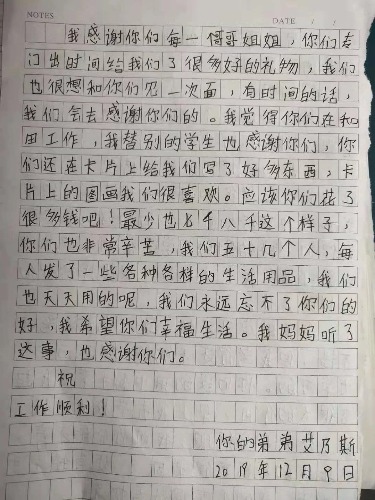 NOTES
DATE / /
我感谢你们每一哥哥姐姐,你们专
门出时间给我们了很多好的礼物,我们
也很想和你们见一次面,有时间的话,
我们会去感谢你们的。我觉得你们在和
田工作,我替别的学生也感谢你们,你
们还在卡片上给我们写了好多东西,卡
片上的图画我们很喜欢。应该你们花了
很多钱吧!最少也七千八千这个样子,
你们也非常辛苦,我们五十几个人,每
人发了一些各种各样的生活用品,我们
也天天用的呢,我们永远忘不了你们的
好,我希望你们幸福生活。我妈妈听了
这事,也感谢你们。
祝
工作顺利!
你的弟弟艾乃斯
2019年12月9日